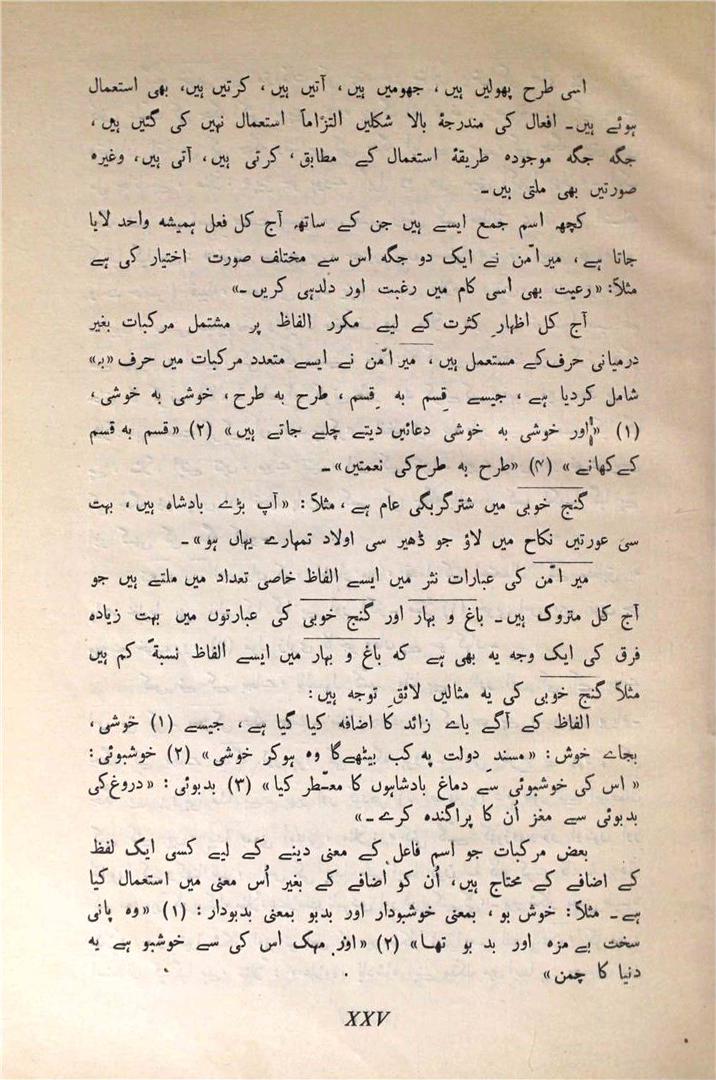 اسی طرح پھولیں ہیں، جھومیں ہیں، آتیں ہیں، کرتیں ہیں، بھی استعمال
ہوئے ہیں۔ افعال کی مندرجۂ بالا شکلیں التزاماً استعمال نہیں کی گئیں ہیں،
جگہ جگہ موجودہ طریقۂ استعمال کے مطابق، کرتی ہیں، آتی ہیں، وغیرہ
صورتیں بھی ملتی ہیں۔
کچھ اسم جمع ایسے ہیں جن کے ساتھ آج کل فعل ہمیشہ واحد لایا
جاتا ہے، میر امّن نے ایک دو جگہ اس سے مختلف صورت اختیار کی ہے
مثلاً: «رعیت بھی اسی کام میں رغبت اور دلدہی کریں۔»
آج کل اظہارِ کثرت کے لیے مکرر الفاظ پر مشتمل مرکبات بغیر
درمیانی حرف کے مستعمل ہیں، میر امّن نے ایسے متعدد مرکبات میں حرف «بہ»
شامل کردیا ہے، جیسے قِسم بہ قِسم، طرح بہ طرح، خوشی بہ خوشی،
(۱) «اور خوشی بہ خوشی دعائیں دیتے چلے جاتے ہیں» (۲) «قسم بہ قسم
کے کھانے» (۴) «طرح بہ طرح کی نعمتیں»۔
گنج خوبی میں شترگربگی عام ہے، مثلاً: «آپ بڑے بادشاہ ہیں، بہت
سی عورتیں نکاح میں لاؤ جو ڈھیر سی اولاد تمہارے یہاں ہو»۔
میر امّن کی عبارات نثر میں ایسے الفاظ خاصی تعداد میں ملتے ہیں جو
آج کل متروک ہیں۔ باغ و بہار اور گنج خوبی کی عبارتوں میں بہت زیادہ
فرق کی ایک وجہ یہ بھی ہے کہ باغ و بہار میں ایسے الفاظ نسبۃً کم ہیں
مثلاً گنج خوبی کی یہ مثالیں لائقِ توجہ ہیں:
الفاظ کے آگے یاے زائد کا اضافہ کیا گیا ہے، جیسے (۱) خوشی،
بجاے خوش: «مسندِ دولت پہ کب بیٹھےگا وہ ہوکر خوشی» (۲) خوشبوئی:
«اس کی خوشبوئی سے دماغ بادشاہوں کا معطّر کیا» (۳) بدبوئی: «دروغ کی
بدبوئی سے مغز اُن کا پراگندہ کرے۔»
بعض مرکبات جو اسم فاعل کے معنی دینے کے لیے کسی ایک لفظ
کے اضافے کے محتاج ہیں، اُن کو اضافے کے بغیر اُس معنی میں استعمال کیا
ہے۔ مثلاً: خوش بو، بمعنی خوشبودار اور بدبو بمعنی بدبودار: (۱) «وہ پانی
سخت بے مزہ اور بد بو تھا» (۲) «اور مہک اس کی سے خوشبو ہے یہ
دنیا کا چمن»
XXV